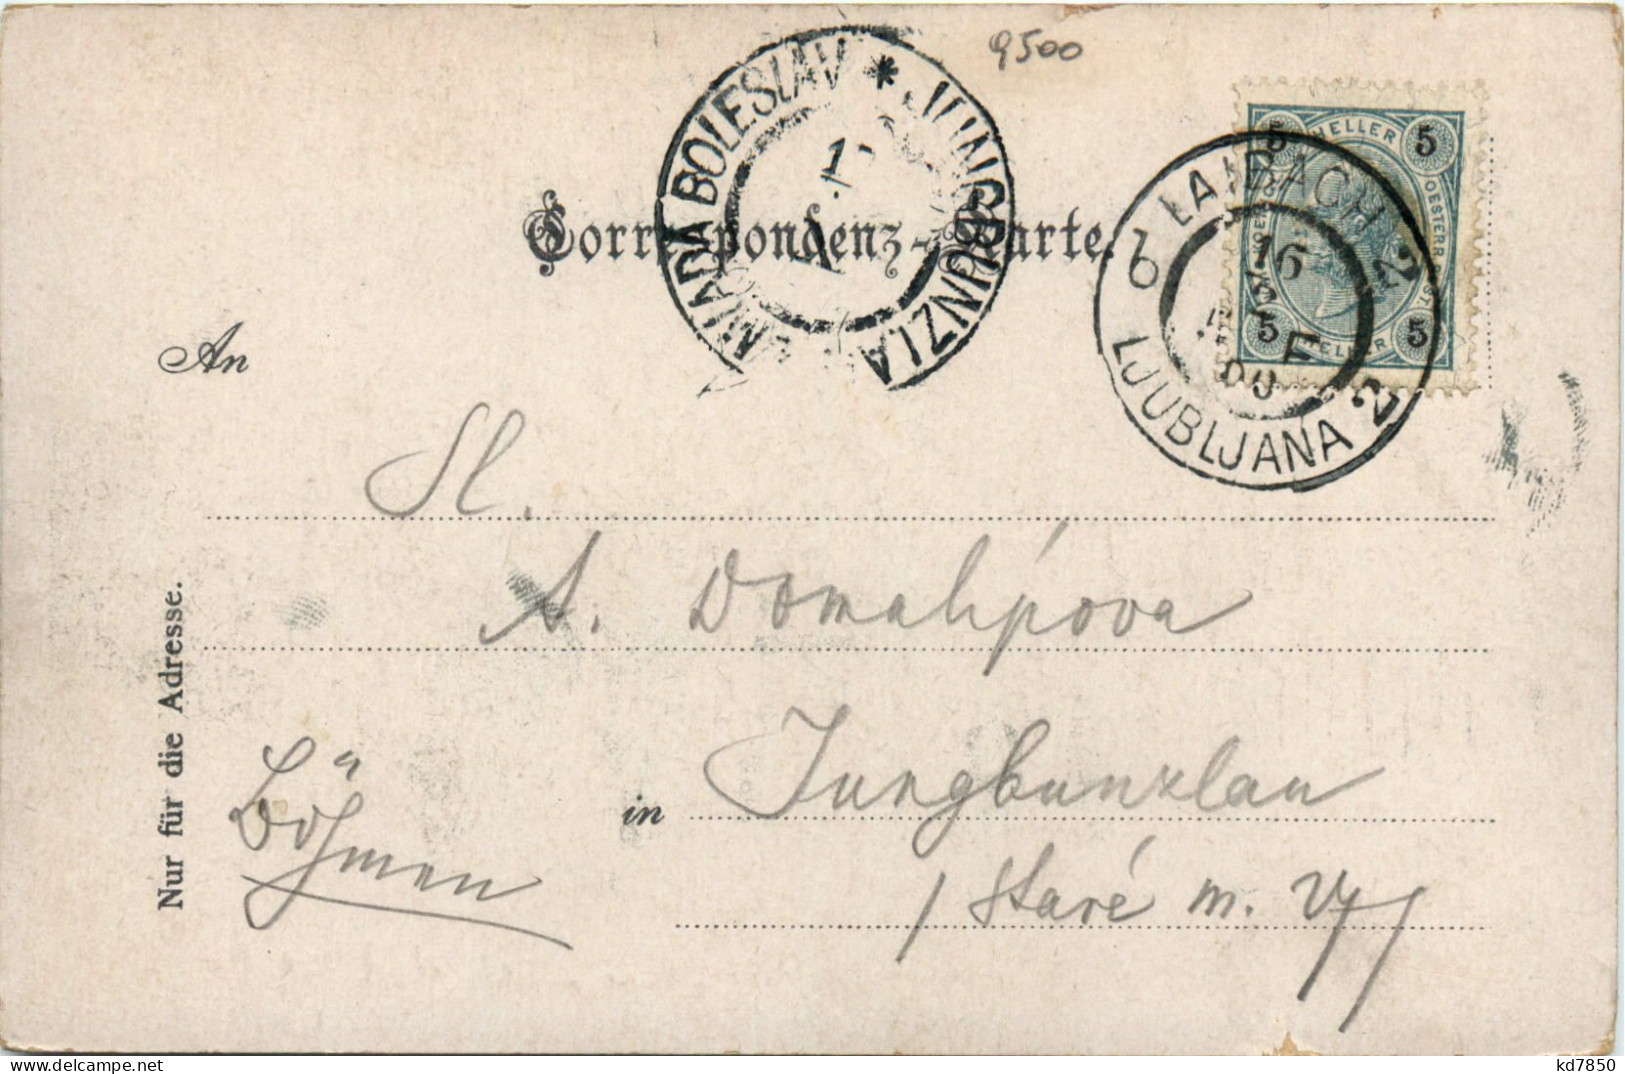 9500
MLADA BOLESLAV * JUNGBUNZLAU
5 HELLER 5
5 HELLER 5
LAIBACH 2
LJUBLJANA 2
b
16
00
Correspondenz-Karte.
An
Sl.
A. Domalípova
in Jungbunzlau
Böhmen
/ Staré m.
Nur für die Adresse.
kd7850